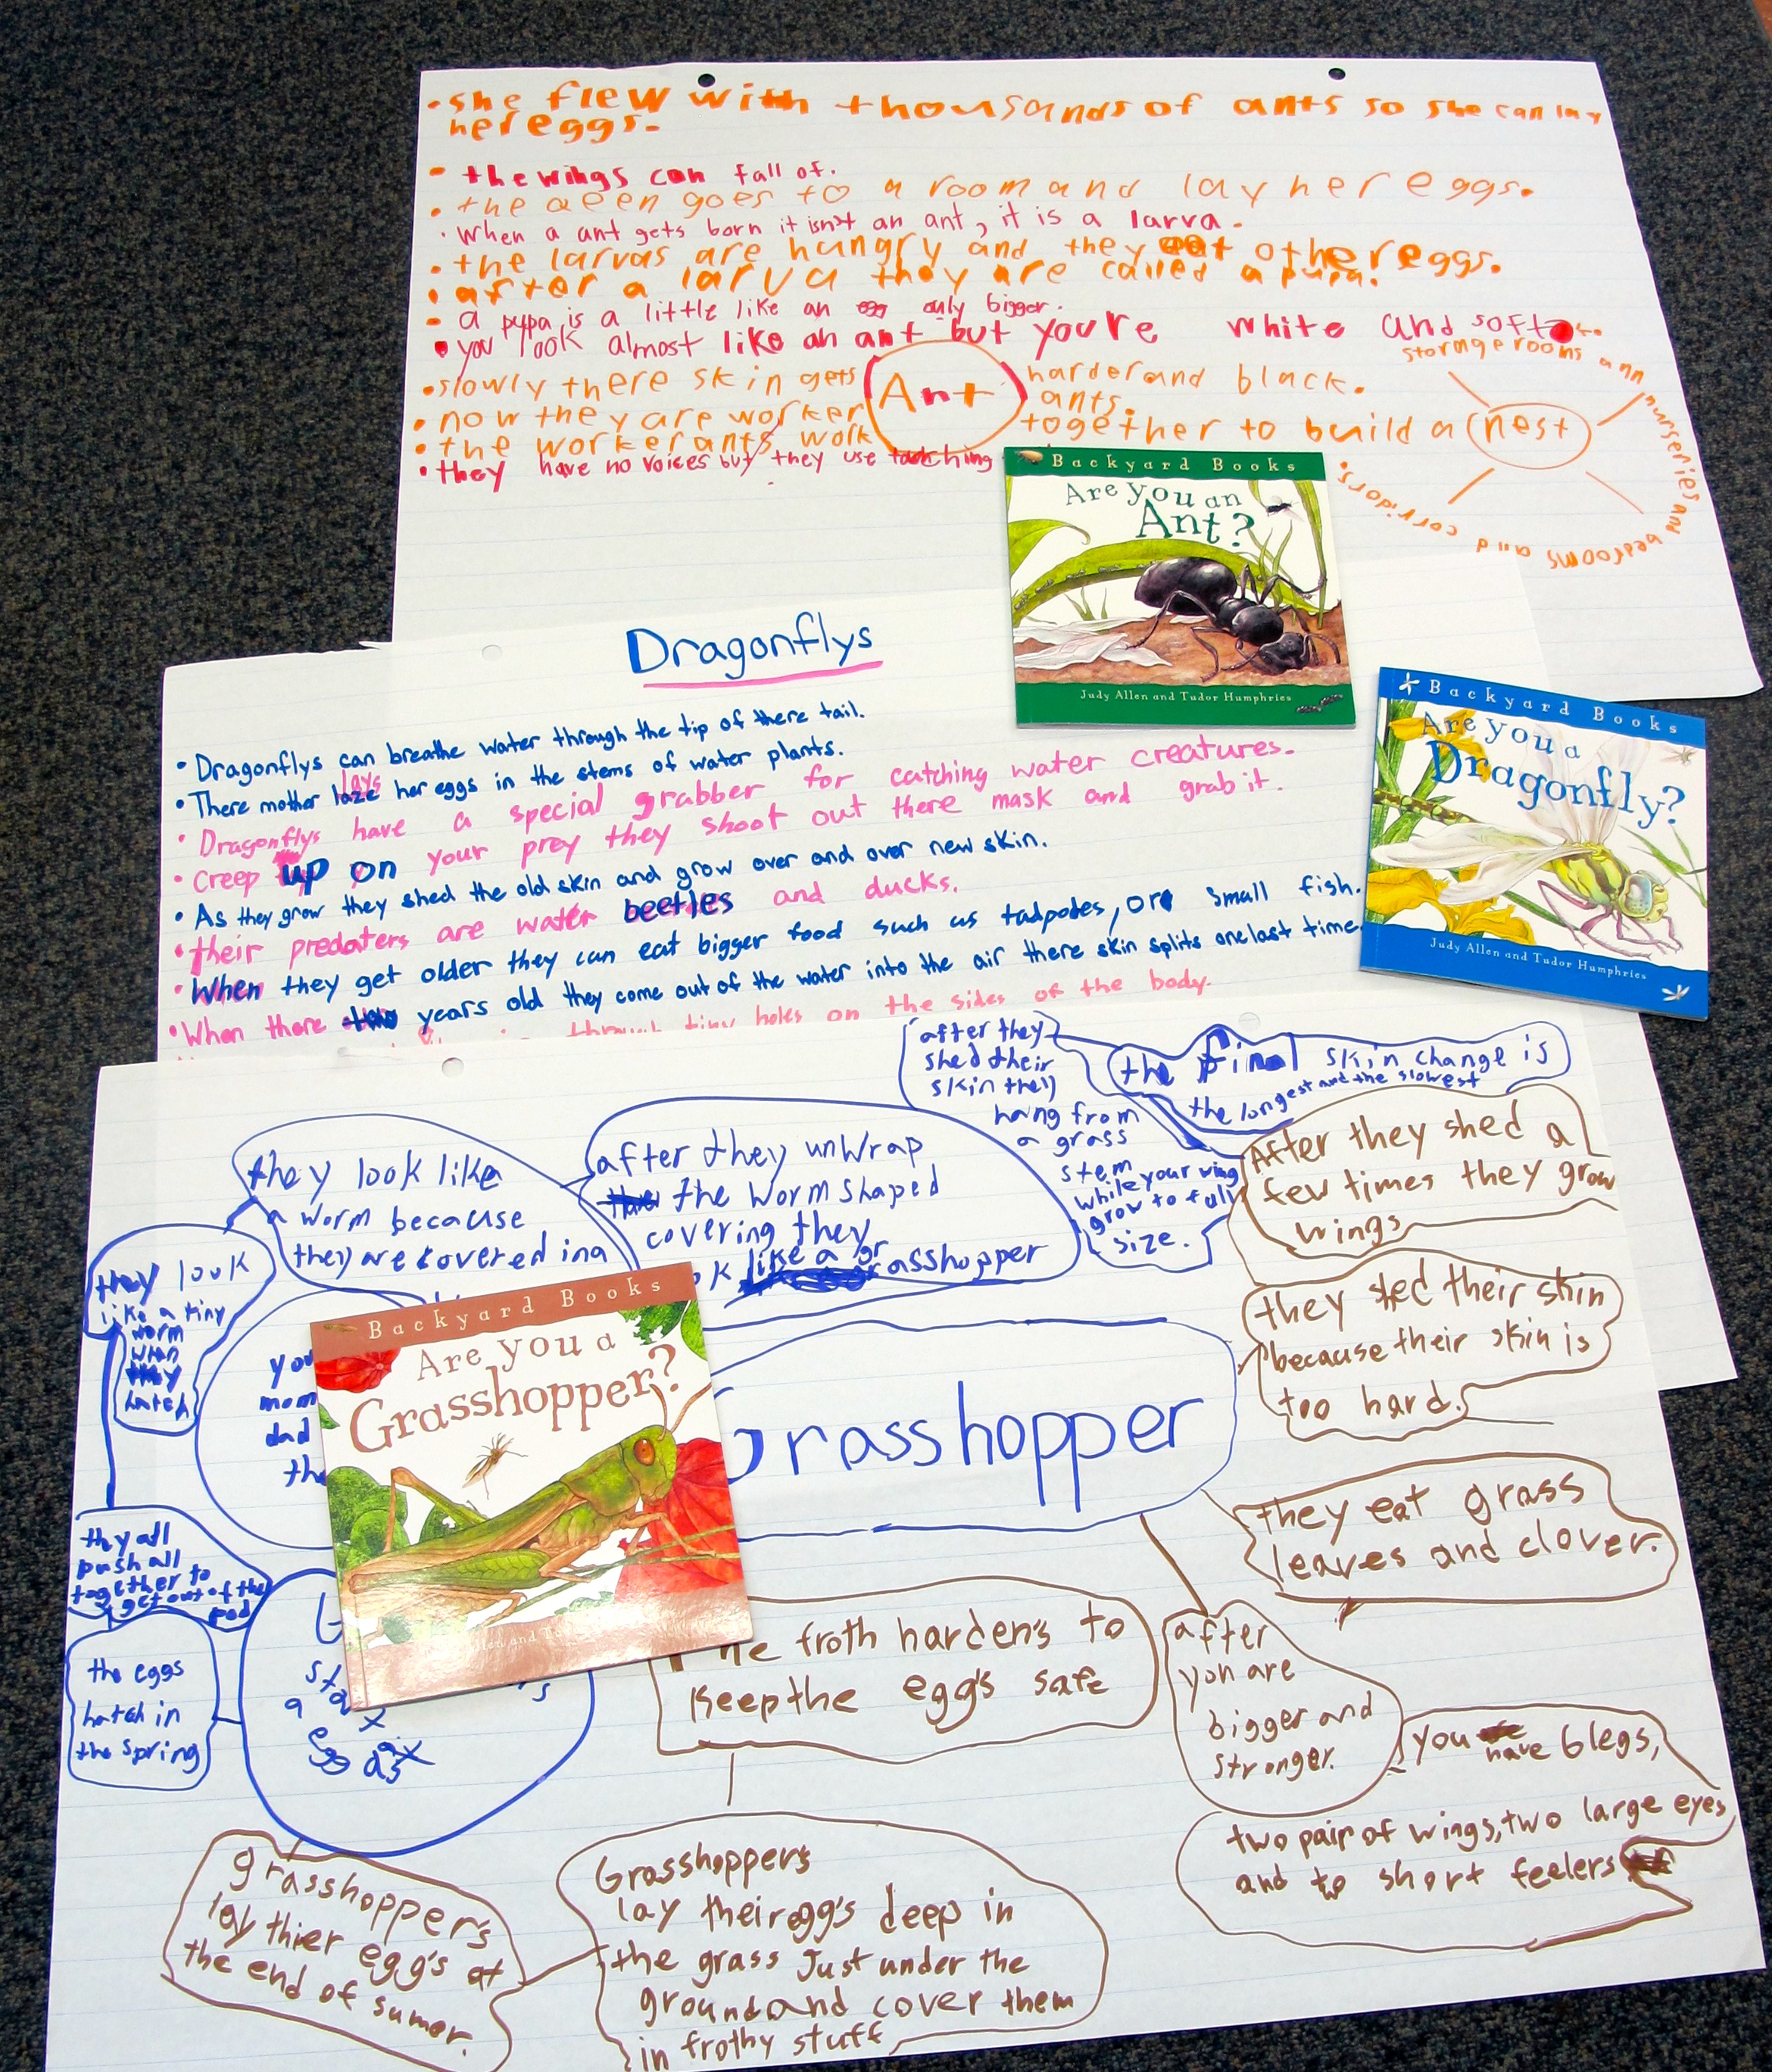 • she flew with thousands of ants so she can lay
her eggs.
• the wings can fall of.
• the qeen goes to a room and lay her eggs.
• When a ant gets born it isn't an ant, it is a larva.
• the larvas are hungry and they eat other eggs.
• after a larva they are called a pupa.
• a pupa is a little like an egg only bigger.
• you look almost like an ant but you're white and soft
• slowly there skin gets harder and black.
• now they are worker ants.
• the worker ants work together to build a nest
• they have no voices but they use
Ant
storage rooms ann
nurseries and
bedrooms and
corridors.
Backyard Books
Are you an
Ant?
Judy Allen and Tudor Humphries
Dragonflys
• Dragonflys can breathe water through the tip of there tail.
• There mother lays her eggs in the stems of water plants.
• Dragonflys have a special grabber for catching water creatures.
• Creep up on your prey they shoot out there mask and grab it.
• As they grow they shed the old skin and grow over and over new skin.
• their predaters are water beetles and ducks.
• When they get older they can eat bigger food such as tadpoles, or small fish.
• When there two years old they come out of the water into the air there skin splits one last time.
through tiny holes on the sides of the body.
Backyard Books
Are you a
Dragonfly?
Judy Allen and Tudor Humphries
after they
shed their
skin they
hang from
a grass
stem
while your wing
grow to full
size.
the final skin change is
the longest and the slowest
After they shed a
few times they grow
wings
they look like
a worm because
they are covered in a
after they unwrap
the worm shaped
covering they
like a gr
asshopper
they look
like a tiny
worm
when
they
hatch
they shed their skin
because their skin is
too hard.
you
mom
dad
the
Backyard Books
Are you a
Grasshopper?
Allen and
Grasshopper
they eat grass
leaves and clover.
they all
push all
together to
get out of the
pod
the eggs
hatch in
the spring
a
egg
as
froth hardens to
Keep the egg's safe
after
you are
bigger and
stronger.
you have 6 legs,
two pair of wings, two large eyes
and to short feelers
grasshopper's
lay thier egg's at
the end of sumer.
Grasshopper's
lay their egg's deep in
the grass Just under the
ground and cover them
in frothy stuff